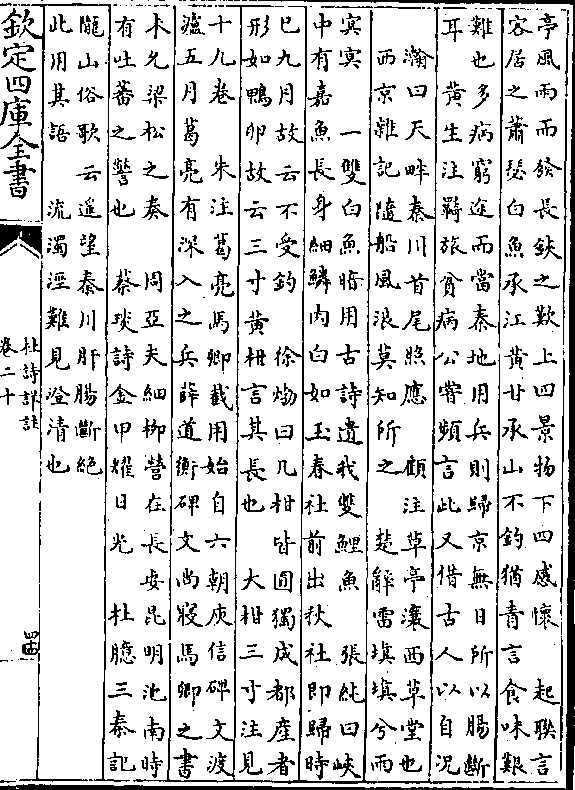 亭風雨而發長鋏之歎上四景物下四感懷　起聯言
客居之蕭瑟白魚承江黃甘承山不釣猶青言食味艱
難也多病窮途而當秦地用兵則歸京無日所以腸斷
耳　黃生注羇旅貧病公寗頻言此又借古人以自況
瀚曰天畔秦川首尾照應　顧注草亭瀼西草堂也
西京雜記隨船風浪莫知所之　楚辭雷填填兮雨
冥冥　一雙白魚暗用古詩遺我雙鯉魚　張綖曰峽
中有嘉魚長身細鱗肉白如玉春社前出秋社即歸時
已九月故云不受釣　徐𤊹曰凡柑皆圓獨成都産者
形如鴨卵故云三寸黃柑言其長也　大柑三寸注見
十九卷　朱注葛亮馬卿截用始自六朝庾信碑文渡
瀘五月葛亮有深入之兵薛道衡碑文尚寢馬卿之書
未允梁松之奏　周亞夫細柳營在長安昆明池南時
有吐蕃之警也　蔡琰詩金甲耀日光　杜臆三秦記
隴山俗歌云遥望秦川肝腸斷絶
此用其語　流濁涇難見澄清也
欽定四庫全書
杜詩詳註
卷二十